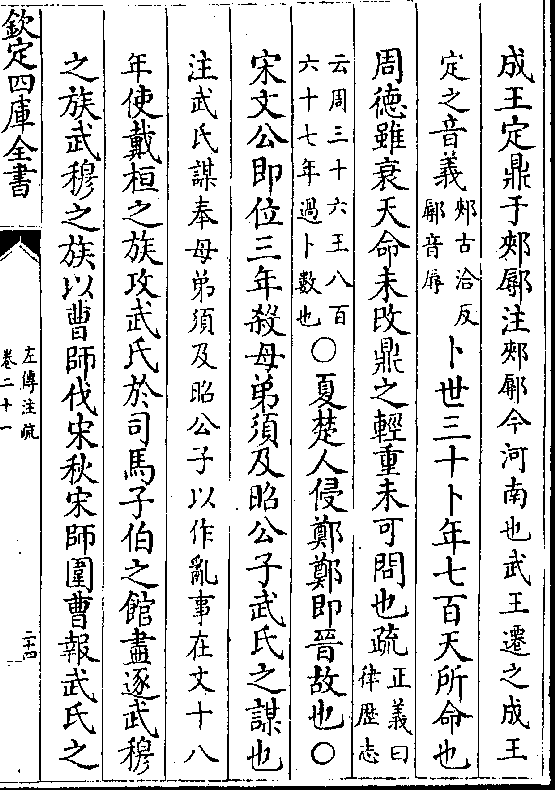 成王定鼎于郟鄏注郟鄏今河南也武王遷之成王
定之音義郟古洽反鄏音辱卜世三十卜年七百天所命也
周德雖衰天命未改鼎之輕重未可問也疏正義曰律歴志
云周三十六王八百六十七年過卜數也○夏楚人侵鄭鄭即晉故也○
宋文公即位三年殺母弟須及昭公子武氏之謀也
注武氏謀奉母弟須及昭公子以作亂事在文十八
年使戴桓之族攻武氏於司馬子伯之館盡逐武穆
之族武穆之族以曹師伐宋秋宋師圍曹報武氏之
欽定四庫全書
左傳注疏
卷二十一
二十四